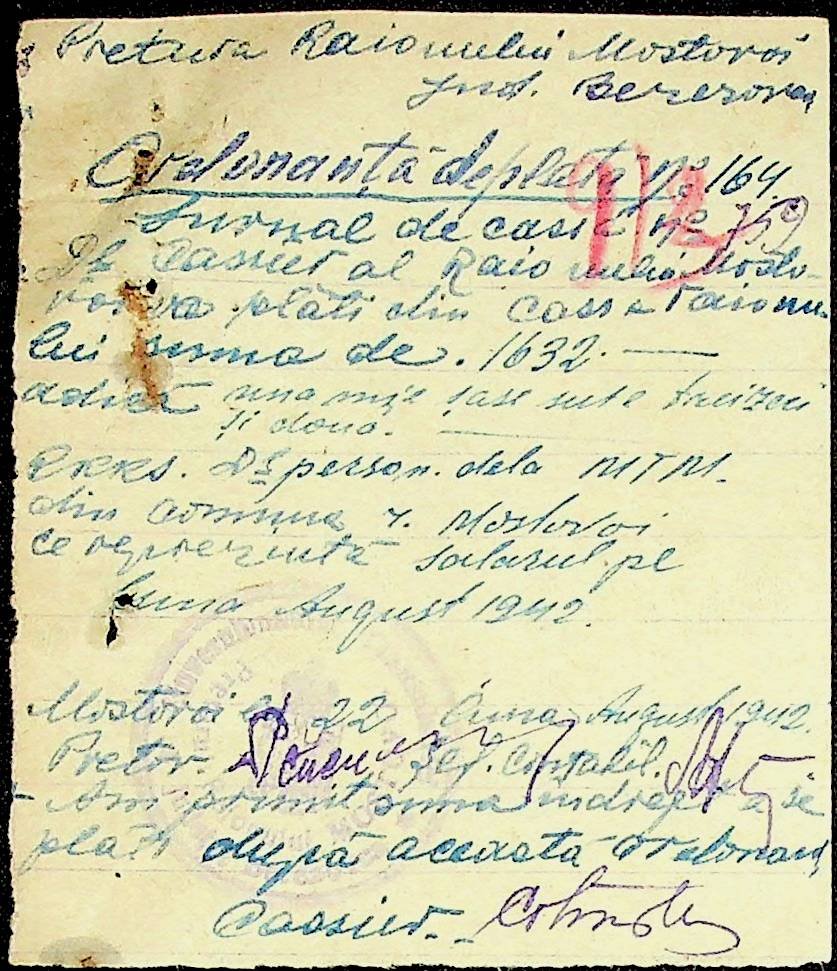 Pretura Raionului Mostovoi
Jud. Berezovca
Ordonanță de plată № 164
Jurnal de casă №
913
Dl. Cassier al Raionului Mosto-
voi va plăti din Cassa raionu-
lui suma de. 1632. —
adică una mie șase sute treizeci
și doua. —
RKKS. Dl. person. dela MTM.
din comuna r. Mostovoi
ce reprezintă salarul pe
luna August 1942.
Mostovoi 22 luna August 1942.
Pretor. Șef. Contabil.
Am primit suma îndrept a se
plăti după aceasta ordonanță
Cassier.